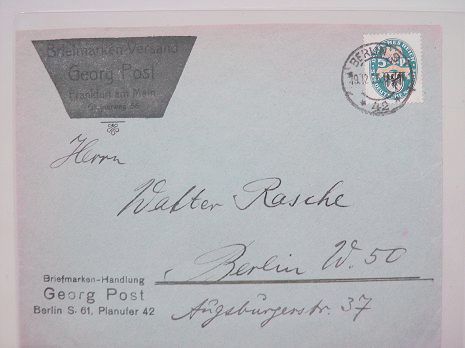 Briefmarken-Versand
Georg Post
Frankfurt am Main
BERLIN
42
DEUTSCHES REICH
5
Herrn
Walter Rasche
Berlin W. 50
Augsburgerstr. 37
Briefmarken-Handlung
Georg Post
Berlin S. 61, Planufer 42